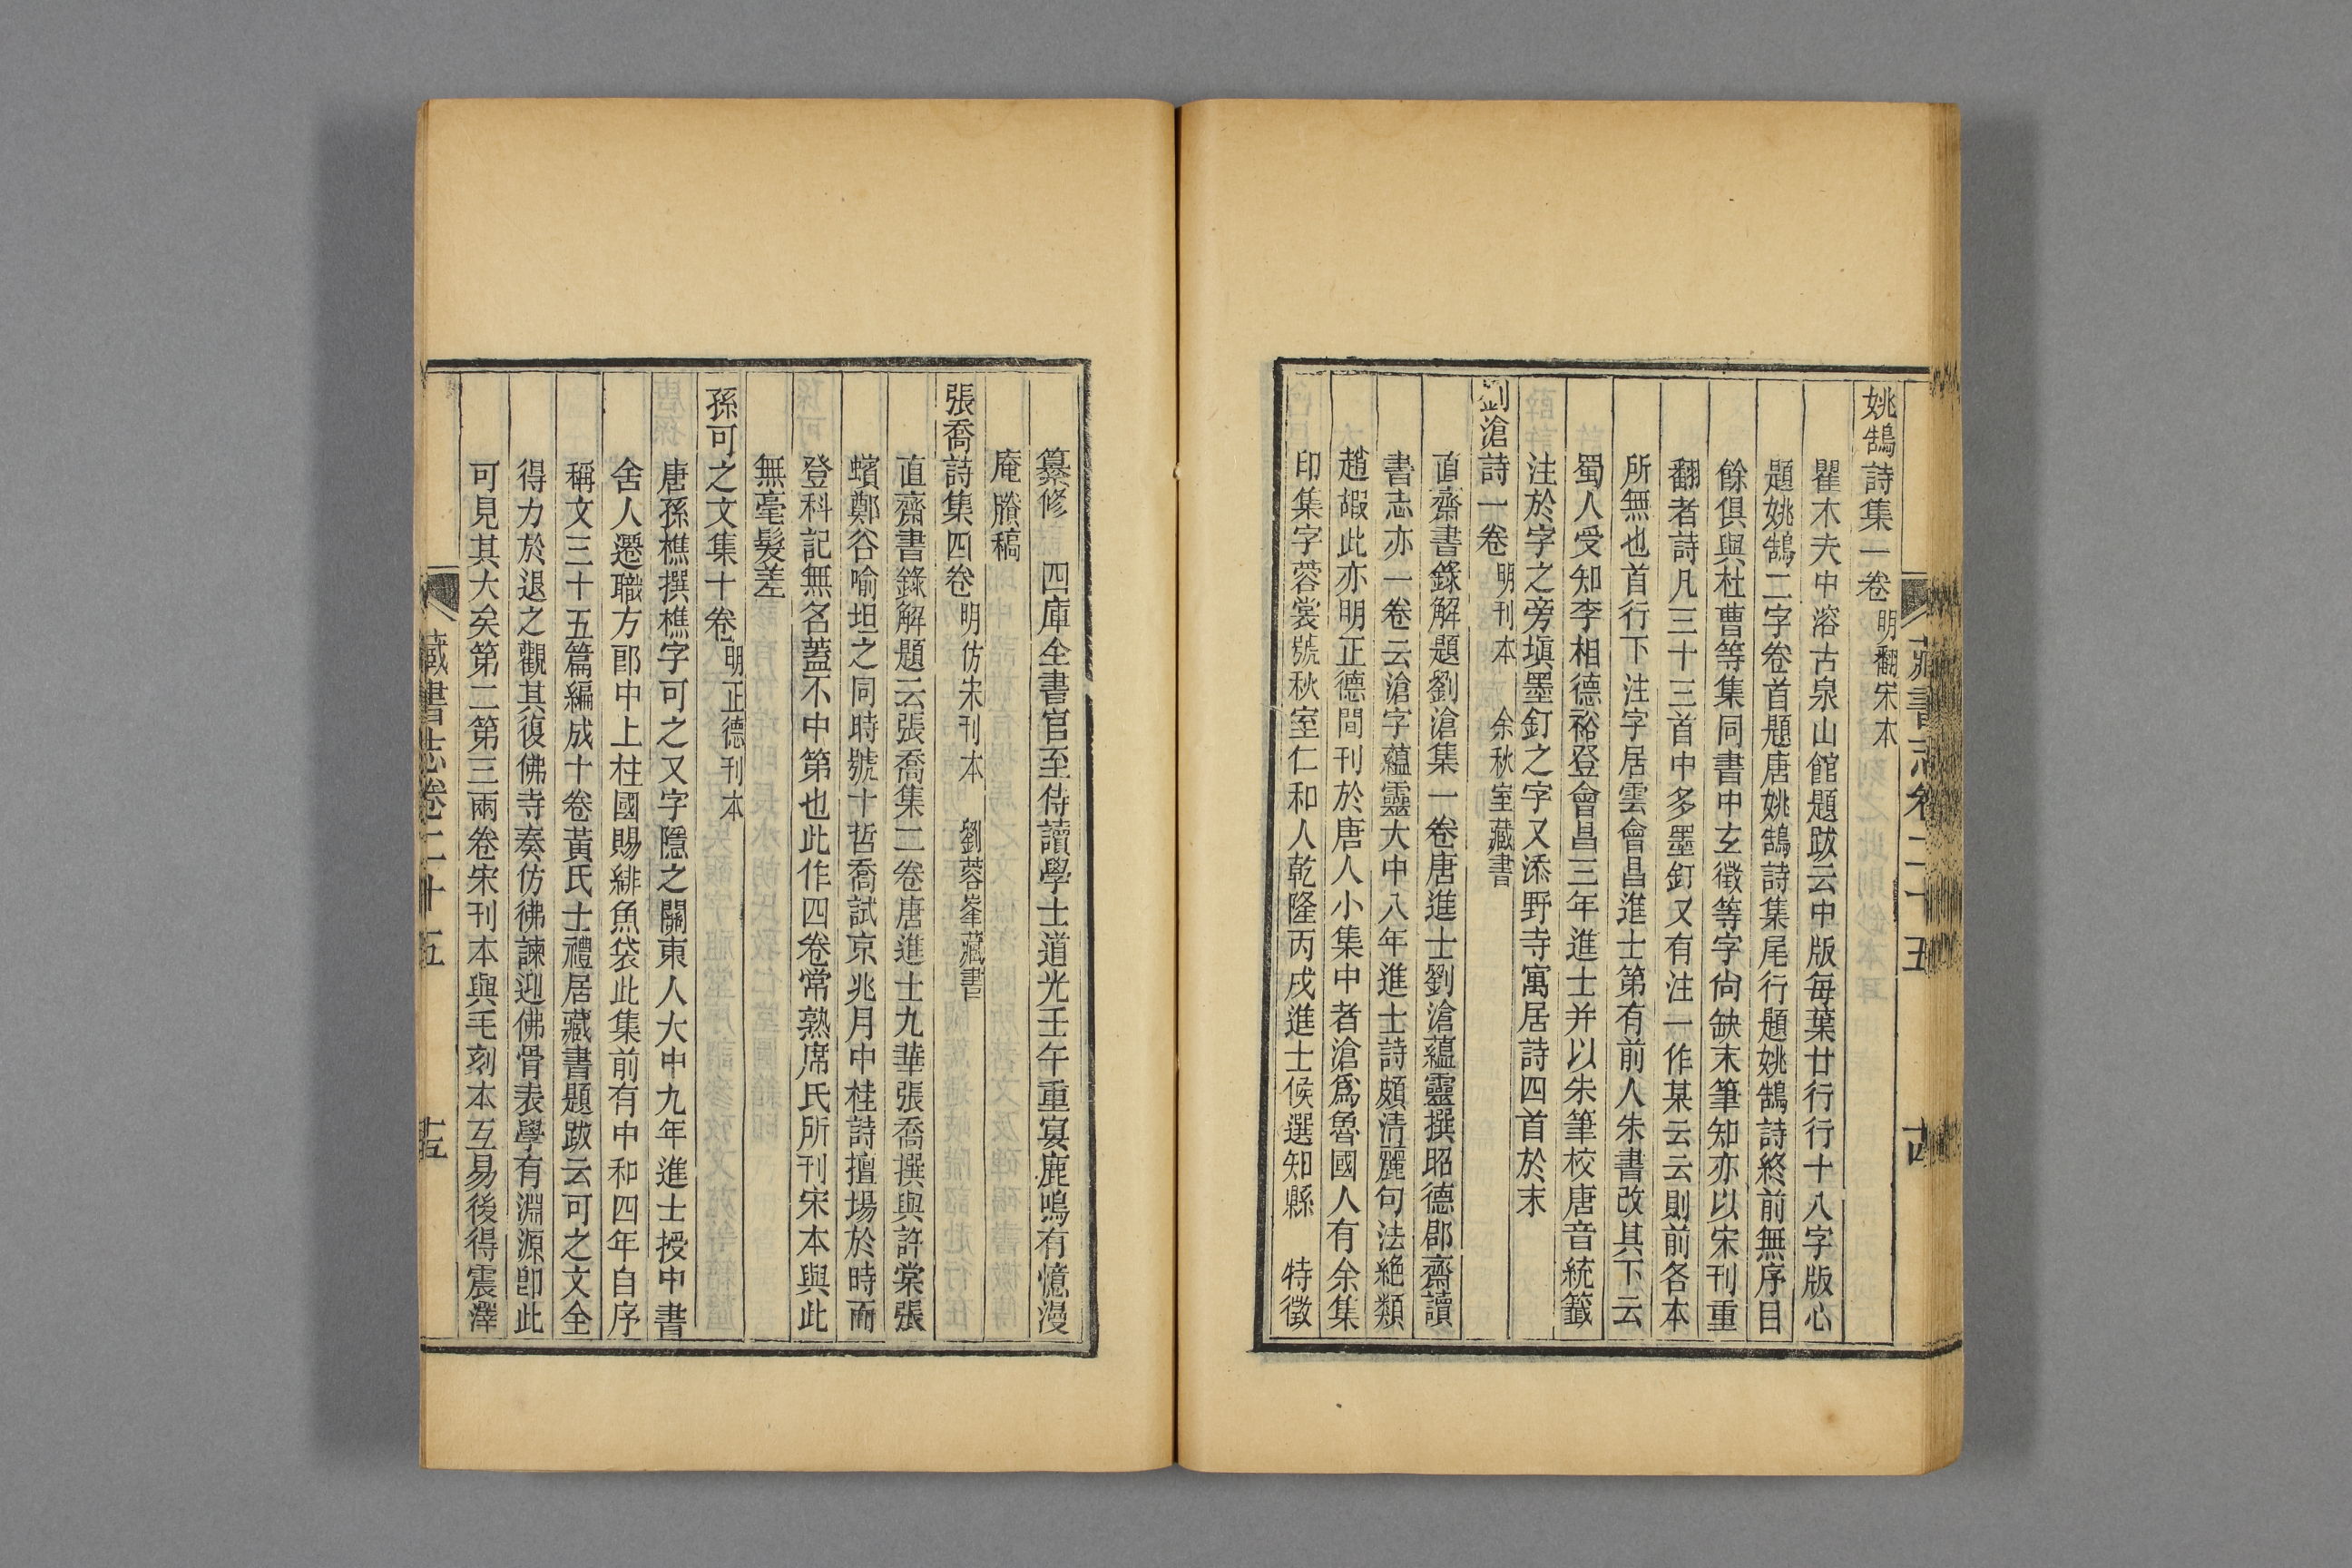 姚鵠詩集一卷 明翻宋本
瞿木夫中溶古泉山館題跋云中版每葉廿行行十八字版心
題姚鵠二字卷首題唐姚鵠詩集尾行題姚鵠詩終前無序目
餘俱與杜曹等集同書中玄徵等字尙缺末筆知亦以宋刊重
翻者詩凡三十三首中多墨釘又有注一作某云云則前各本
所無也首行下注字居雲會昌進士第有前人朱書改其下云
蜀人受知李相德裕登會昌三年進士并以朱筆校唐音統籤
注於字之旁塡墨釘之字又添野寺寓居詩四首於末
劉滄詩一卷 明刊本 余秋室藏書
直齋書錄解題劉滄集一卷唐進士劉滄蘊靈撰昭德郡齋讀
書志亦一卷云滄字蘊靈大中八年進士詩頗清麗句法絕類
趙嘏此亦明正德間刊於唐人小集中者滄爲魯國人有余集
印集字蓉裳號秋室仁和人乾隆丙戌進士候選知縣 特徵
藏書志卷二十五 十四
纂修 四庫全書官至侍讀學士道光壬午重宴鹿鳴有憶漫
庵賸稿
張喬詩集四卷 明仿宋刊本 劉蓉峯藏書
直齋書錄解題云張喬集二卷唐進士九華張喬撰與許棠張
蠙鄭谷喻坦之同時號十哲喬試京兆月中桂詩擅場於時而
登科記無名蓋不中第也此作四卷常熟席氏所刊宋本與此
無毫髮差
孫可之文集十卷 明正德刊本
唐孫樵撰樵字可之又字隱之關東人大中九年進士授中書
舍人遷職方郎中上柱國賜緋魚袋此集前有中和四年自序
稱文三十五篇編成十卷黃氏士禮居藏書題跋云可之文全
得力於退之觀其復佛寺奏仿彿諫迎佛骨表學有淵源卽此
可見其大矣第二第三兩卷宋刊本與毛刻本互易後得震澤
藏書志卷二十五 十五